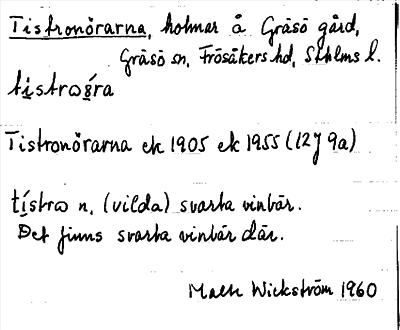 Tistronörarna, holmar å Gräsö gård,
Gräsö sn, Frösåkers hd, Sthlms l.
tistroøra
Tistronörarna ek 1905 ek 1955 (12J 9a)
tístrω n. (vilda) svarta vinbär.
Det finns svarta vinbär där.
Mats Wickström 1960